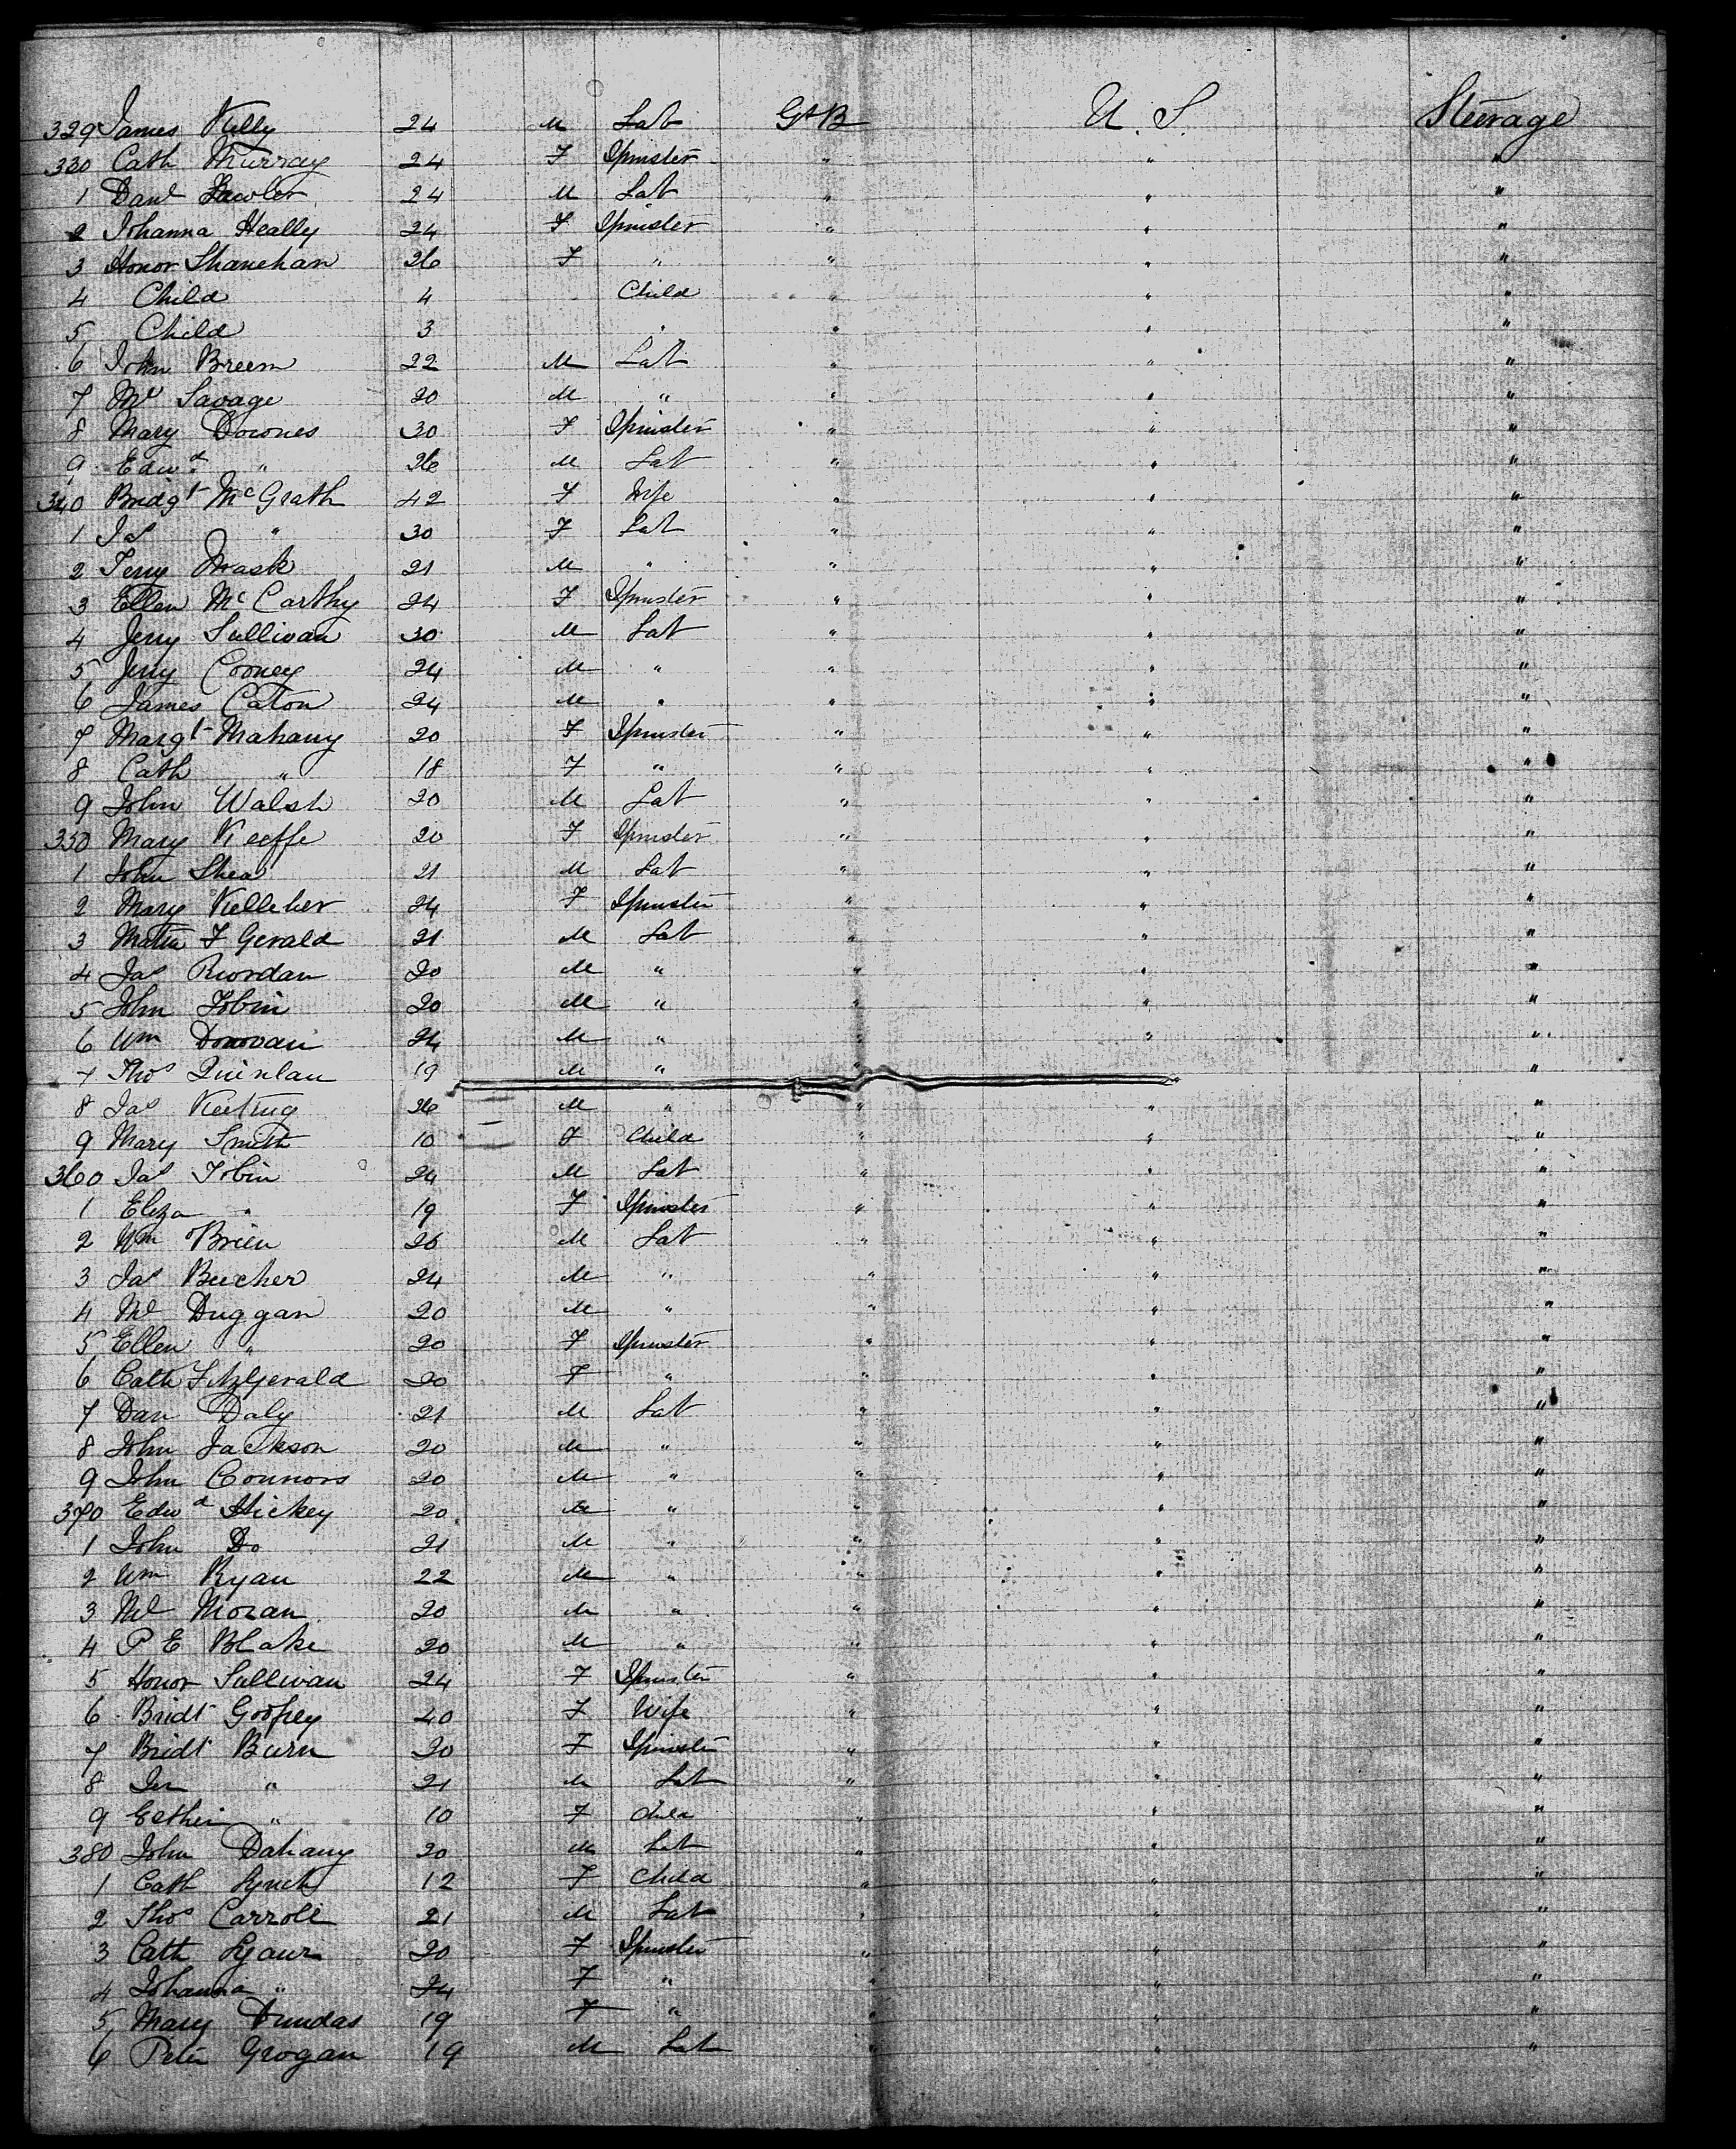 329 James Kelly 24 M Lab Gt B U. S. Steerage
330 Cath Murray 24 F Spinster " " "
1 Danl Lawler 24 M Lab " " "
2 Johanna Heally 24 F Spinster " " "
3 Honor Shanehan 26 F " " " "
4 Child 4 Child " " "
5 Child 3 " " " "
6 John Breem 22 M Lab " " "
7 Ml Savage 20 M " " " "
8 Mary Downes 30 F Spinster " " "
9 Edwd " 26 M Lab " " "
340 Bridgt McGrath 42 F Wife " " "
1 Jas " 30 F Lab " " "
2 Terry 21 M " " " "
3 Ellen McCarthy 24 F Spinster " " "
4 Jerry Sullivan 30 M Lab " " "
5 Jerry Cooney 24 M " " " "
6 James Caton 24 M " " " "
7 Margt Mahany 20 F Spinster " " "
8 Cath " 18 F " " " "
9 John Walsh 20 M Lab " " "
350 Mary Keeffe 20 F Spinster " " "
1 John Shea 21 M Lab " " "
2 Mary Kelleher 24 F Spinster " " "
3 F Gerald 21 M Lab " " "
4 Jas Riordan 20 M " " " "
5 John Tobin 20 M " " " "
6 Wm Donovan 24 M " " " "
7 Thos Quinlan 19 M " " "
8 Jas Keeting 26 M " " " "
9 Mary Smith 10 F Child " " "
360 Jas Tobin 24 M Lab " " "
1 Eliza " 19 F Spinster " " "
2 Wm OBrien 26 M Lab " " "
3 Jas Beecher 24 M " " " "
4 Ml Duggan 20 M " " " "
5 Ellen " 20 F Spinster " " "
6 Cath Fitzgerald 20 F " " " "
7 Dan Daly 21 M Lab " " "
8 John Jackson 20 M " " " "
9 John Connors 20 M " " " "
370 Edwd Hickey 20 M " " " "
1 John Do 21 M " " " "
2 Wm Ryan 22 M " " " "
3 Ml Moran 20 M " " " "
4 P E Blake 20 M " " " "
5 Honor Sullivan 24 F Spinster " " "
6 Bridt Godfrey 40 F Wife " " "
7 Bridt Burn 20 F Spinster " " "
8 Jer " 21 M Lab " " "
9 Esther " 10 F Child " " "
380 John Dahany 20 M Lab " " "
1 Cath Lynch 12 F Child " " "
2 Thos Carroll 21 M Lab " " "
3 Cath 20 F Spinster " " "
4 Johanna " 24 F " " " "
5 Mary Dundas 19 F " " " "
6 Peter Grogan 19 M Lab " " "